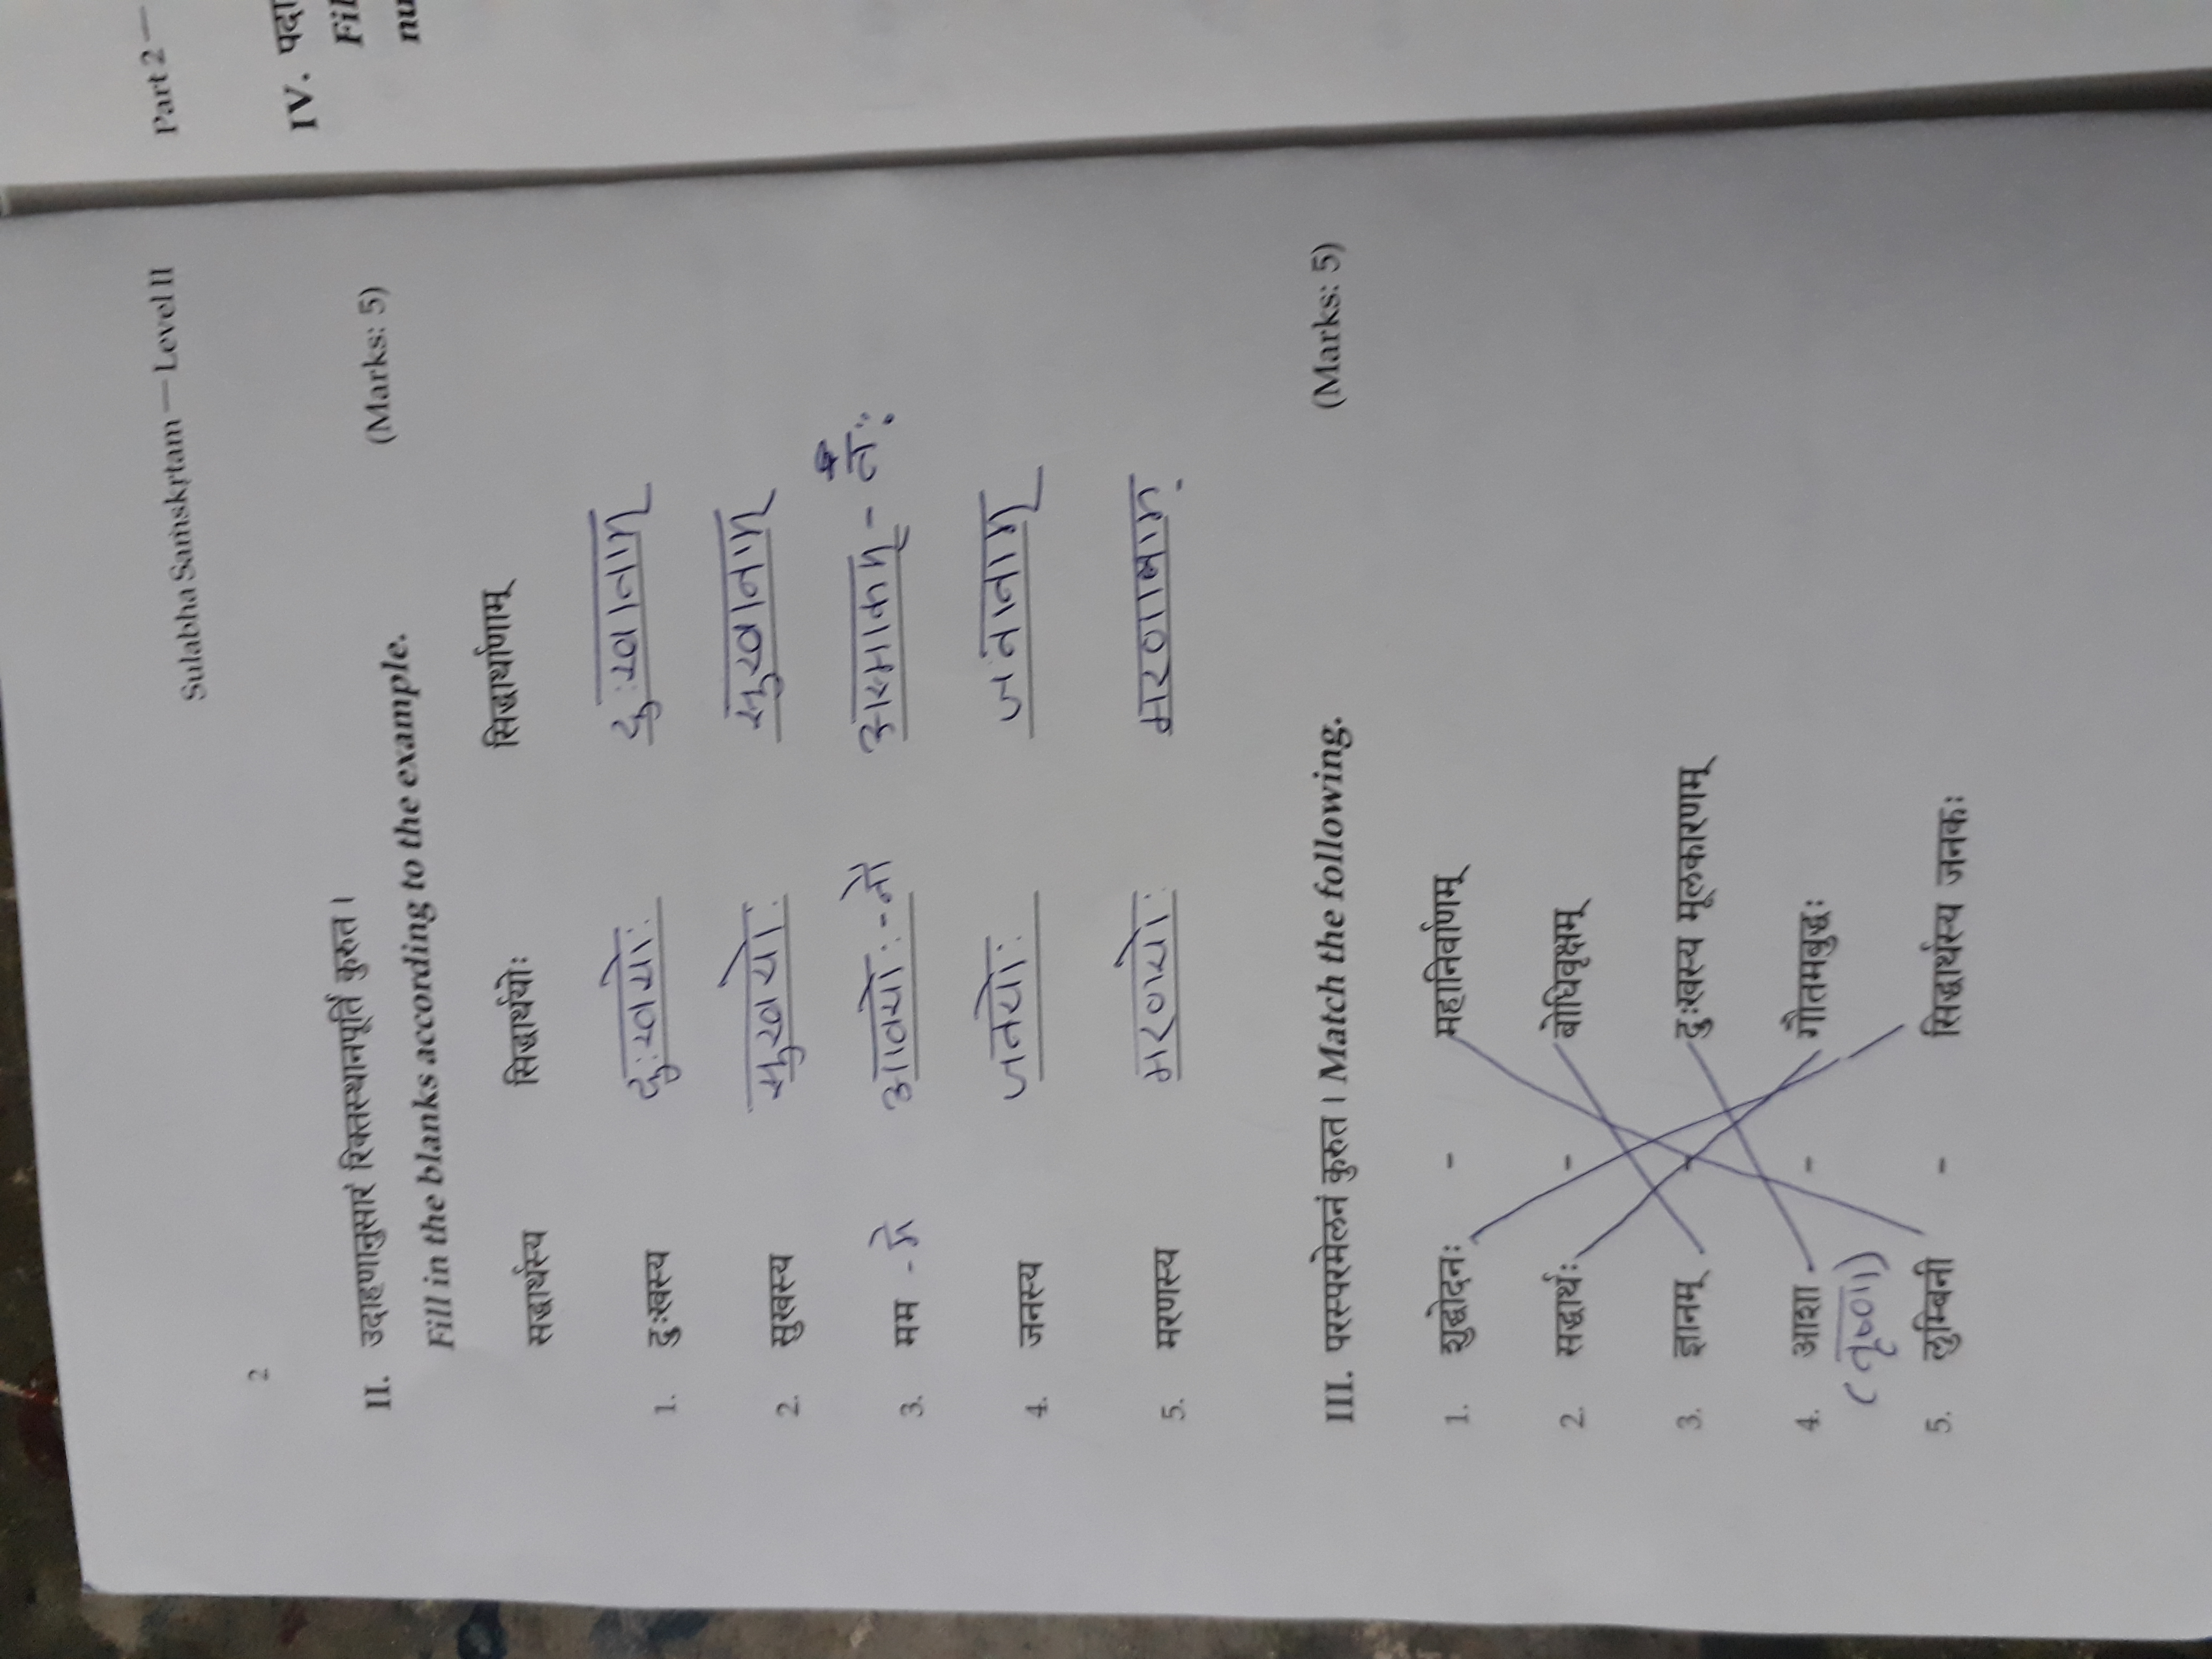 Sulabha Saṁskṛtam — Level II
2
II. उदाहणानुसारं रिक्तस्थानपूर्ति कुरुत ।
Fill in the blanks according to the example. (Marks: 5)
सद्धार्थस्य सिद्धार्थयोः सिद्धार्थाणाम्
1. दुःखस्य दुःखयोः दुःखानाम्
2. सुखस्य सुखयोः सुखानाम्
3. मम - मे आवयोः - नौ अस्माकम् - नः
4. जनस्य जनयोः जनानाम्
5. मरणस्य मरणयोः मरणानाम्
III. परस्परमेलनं कुरुत । Match the following. (Marks: 5)
1. शुद्धोदनः - महानिर्वाणम्
2. सद्धार्थः - बोधिवृक्षम्
3. ज्ञानम् - दुःखस्य मूलकारणम्
4. आशा - गौतमबुद्धः
(तृष्णा)
5. लुम्बिनी - सिद्धार्थस्य जनकः
Part 2 —
IV. पदा
Fil
nu